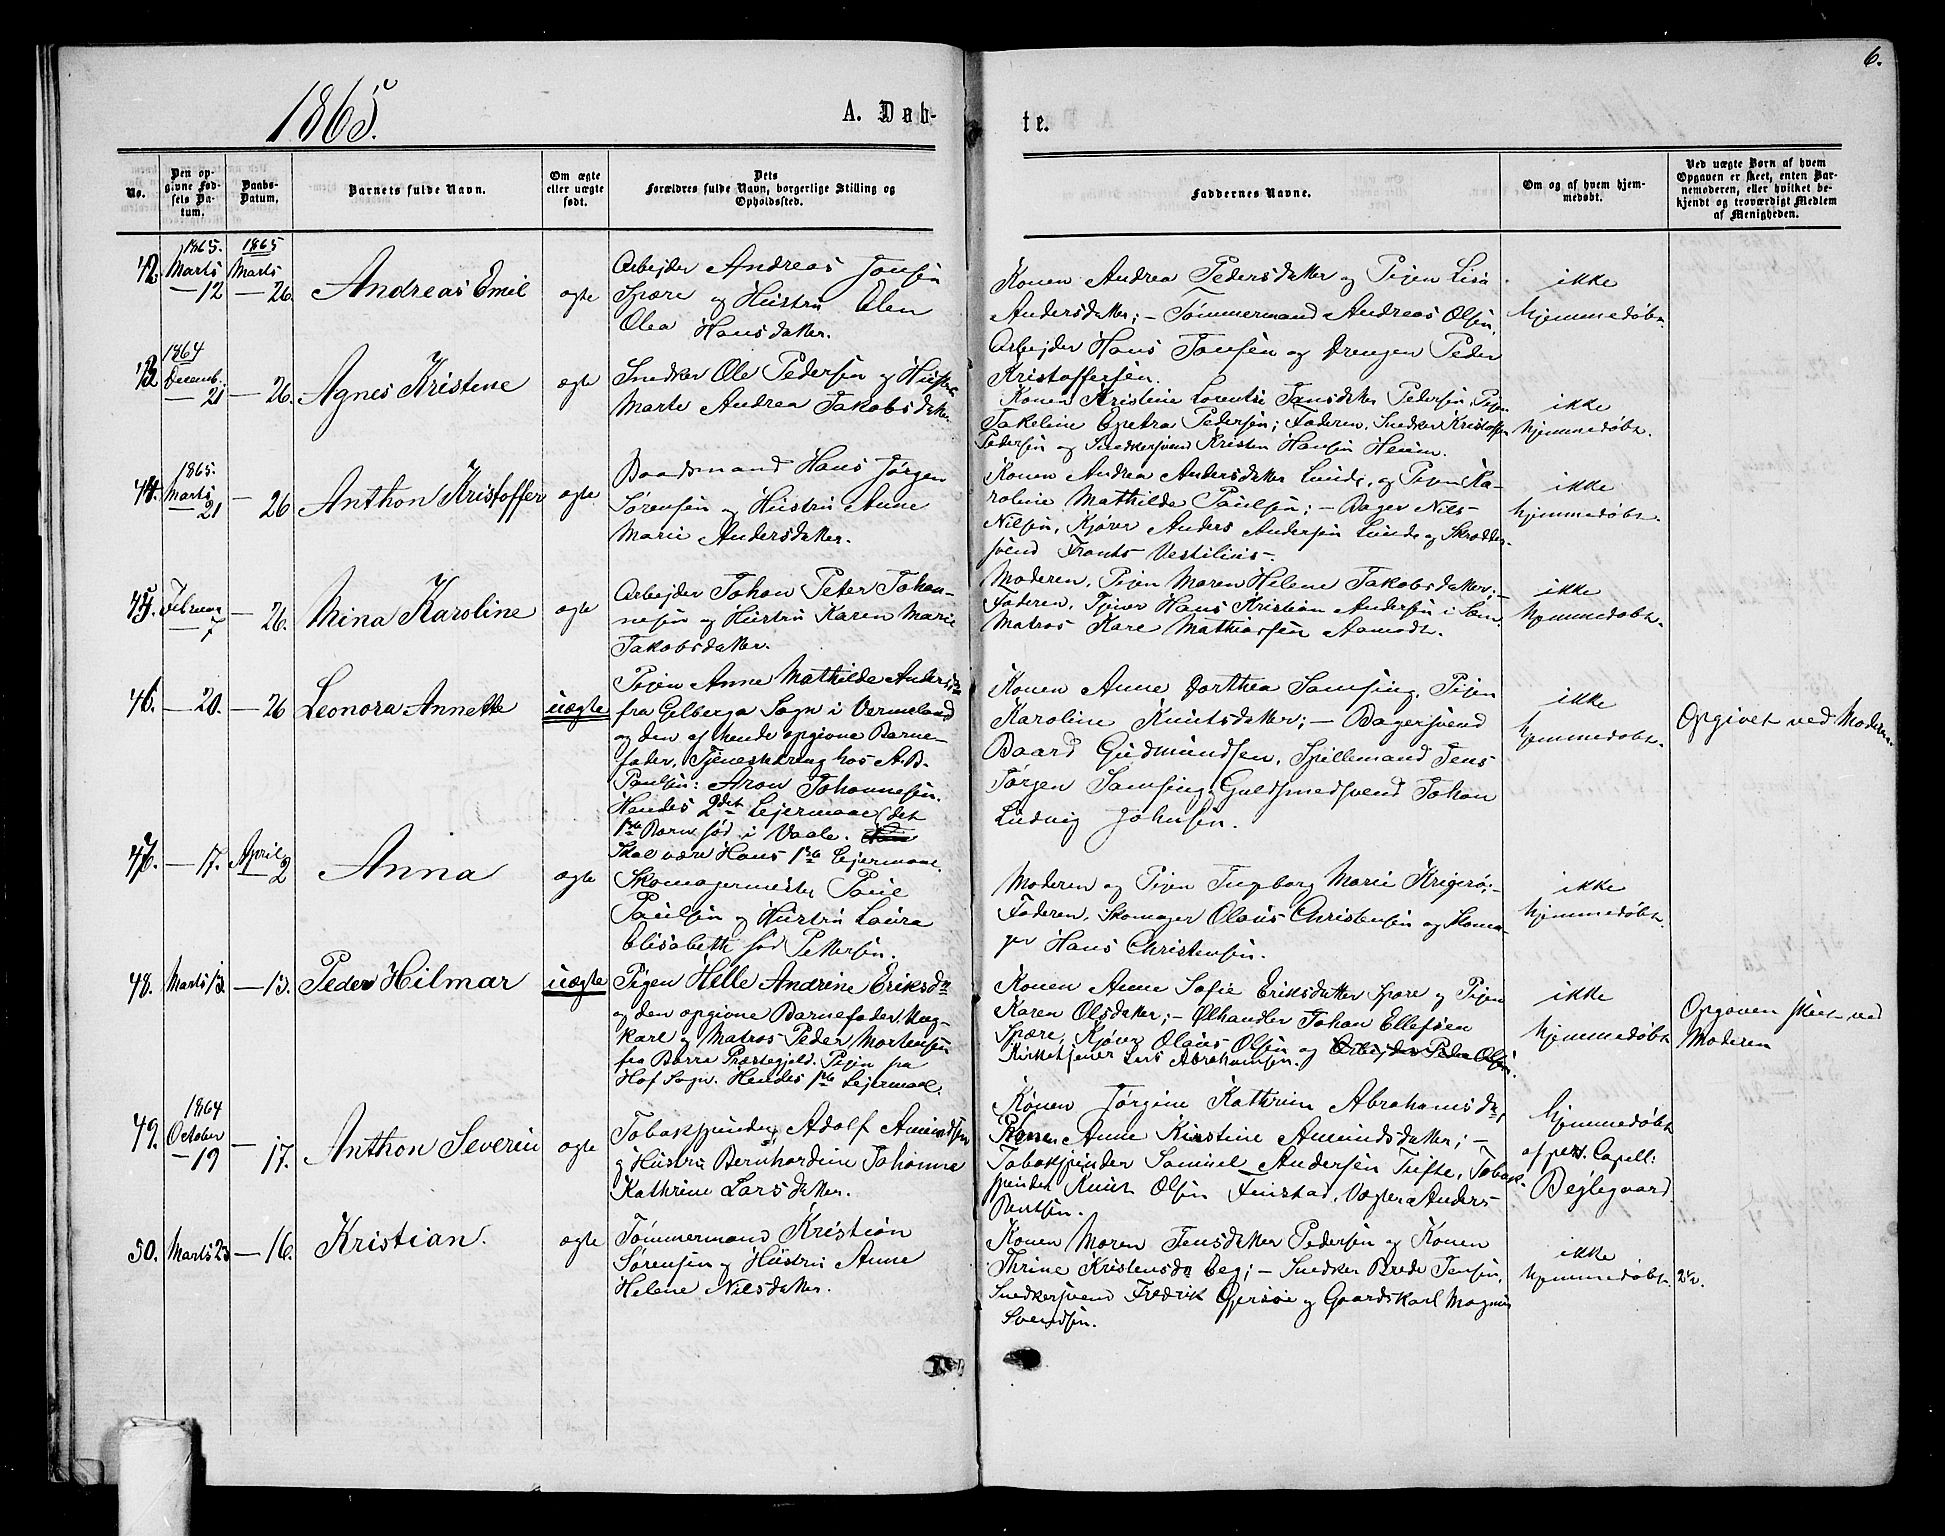 6.
1865.
A. Døb-
te.
No.
Den op-
givne Fød-
sels Da-
tum.
Daabs-
Datum.
Barnets fulde Navn.
Om ægte
eller uægte
født.
Dets
Forældres fulde Navn, borgerlige Stilling og
Opholdssted.
Faddernes Navne.
Om og af hvem hjem-
medøbt.
Ved uægte Børn af hvem
Opgaven er skeet, enten Bar-
nemoderen, eller hvilket be-
kjendt og troværdigt Medlem
af Menigheden.
42.
1865.
Marts
— 12
1865
Marts
— 26.
Andreas Emil
ægte
Arbejder Andreas Jonsen
Spære og Hustru Elen
Olea Hansdatter.
Konen Andrea Pedersdatter og Pigen Lisa
Andersdatter; — Tømmermand Andreas Olsen,
Arbejder Hans Jansen og Drengen Peder
Kristoffersen.
ikke
hjemmedøbt.
43.
1864
Decemb.
— 21
— 26.
Agnes Kristine
ægte
Snedker Ole Pedersen og Hustru
Marte Andrea Jakobsdatter
Konen Kristine Lorentse Jansdatter Pedersen, Pigen
Jakeline Petra Pedersen; Faderen, Snedker Kristoffer
Pedersen og Snedkersvend Kristen Hansen Heium.
ikke
hjemmedøbt.
44.
1865.
Marts
— 21
— 26
Anthon Kristoffer
ægte
Baadsmand Hans Jørgen
Sørensen og Hustru Anne
Marie Andersdatter.
Konen Andrea Andersdatter Lunde, og Pigen Ka-
roline Mathilde Paulsen; — Bager Nils
Nilsen, Kjører Anders Andersen Lunde og Skrædder-
svend Frants Vestilius.
ikke
hjemmedøbt.
45.
Februar
— 7
— 26.
Mina Karoline
ægte
Arbejder Johan Peter Johan-
nesen og Hustru Karen Marie
Jakobsdatter.
Moderen, Pigen Maren Helene Jakobsdatter; —
Faderen, Tjener Hans Kristian Andersen i Sem
Matros Kare Mathiassen Aamodt.
ikke
hjemmedøbt.
46.
— 20.
— 26
Leonora Annette
uægte
Pigen Anne Mathilde Andersdr
fra Gelberga Sogn i Vermeland
og den af hende opgivne Barne-
fader, Tjenestedreng hos A. B.
Paulsen: Aron Johannesen.
Hendes 2det Lejermaal (det
1ste Barn fød i Vaale.
Skal være Hans 1ste Lejermaal.
Konen Anne Dorthea Samsing, Pigen
Karoline Knutsdatter; — Bagersvend
Baard Gudmundsen, Spillemand Jens
Jørgen Samsing, Guldsmedsvend Johan
Ludvig Johnsen.
ikke
hjemmedøbt.
Opgivet ved Moderen
47.
— 17.
April
2
Anna
ægte
Skomagermester Paul
Paulsen og Hustru Laura
Elisabeth fød Pettersen.
Moderen og Pigen Ingborg Marie Krigerø; —
Faderen, Skomager Olaus Christensen og Skoma-
ger Hans Christensen.
ikke
hjemmedøbt.
48.
Marts 13
— 13.
Peder Hilmar
uægte
Pigen Helle Andrine Eriksdr
og den opgivne Barnefader, Ung-
karl og Matros Peder Mortensen
fra Borre Præstegjeld. Pigen fra
Hof Sogn. Hendes 1ste Lejermaal.
Konen Anne Sofie Eriksdatter Spære og Pigen
Karen Olsdatter; — Ølhandler Johan Ellefsen
Spære, Kjører Olaus Olsen og Arbejder Peder Olsen.
Kirketjener Lars Abrahamsen.
ikke
hjemmedøbt
Opgaven skeet ved
Moderen
49.
1864
October
— 19
— 17.
Anthon Severin
ægte
Tobakspinder Adolf Amundsen
og Hustru Bernhardine Johanne
Kathrine Larsdatter.
Konen Jørgine Kathrine Abrahamsdr,
Konen Anne Kirstine Amundsdatter; —
Tobakspinder Samuel Andersen Tufte, Tobak-
spinder Knut Olsen Finstad, Vægter Anders
Bentsen.
hjemmedøbt
af pers. Capell:
Bejlegaard
50.
Marts 23
— 16.
Kristian.
ægte
Tømmermand Kristian
Sørensen og Hustru Anne
Helene Nilsdatter.
Konen Maren Jensdatter Pedersen og Konen
Thrine Kristensdr Beg; — Snedker Brede Jensen,
Snedkersvend Fredrik Gjersøe og Gaardskarl Magnus
Svendsen.
ikke
hjemmedøbt